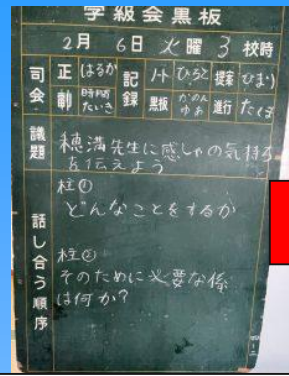 学級会黒板
2月 6日 火曜 3校時
司会 正 はるか 記録 ノート ひろと 提案 ひまり
副 時間 たいき 黒板 かのん ゆあ 進行 たくま
議題 穂満先生に感しゃの気持ち
を伝えよう
話し合う順序
柱①
どんなことをするか
柱②
そのために必要な係
は何か?